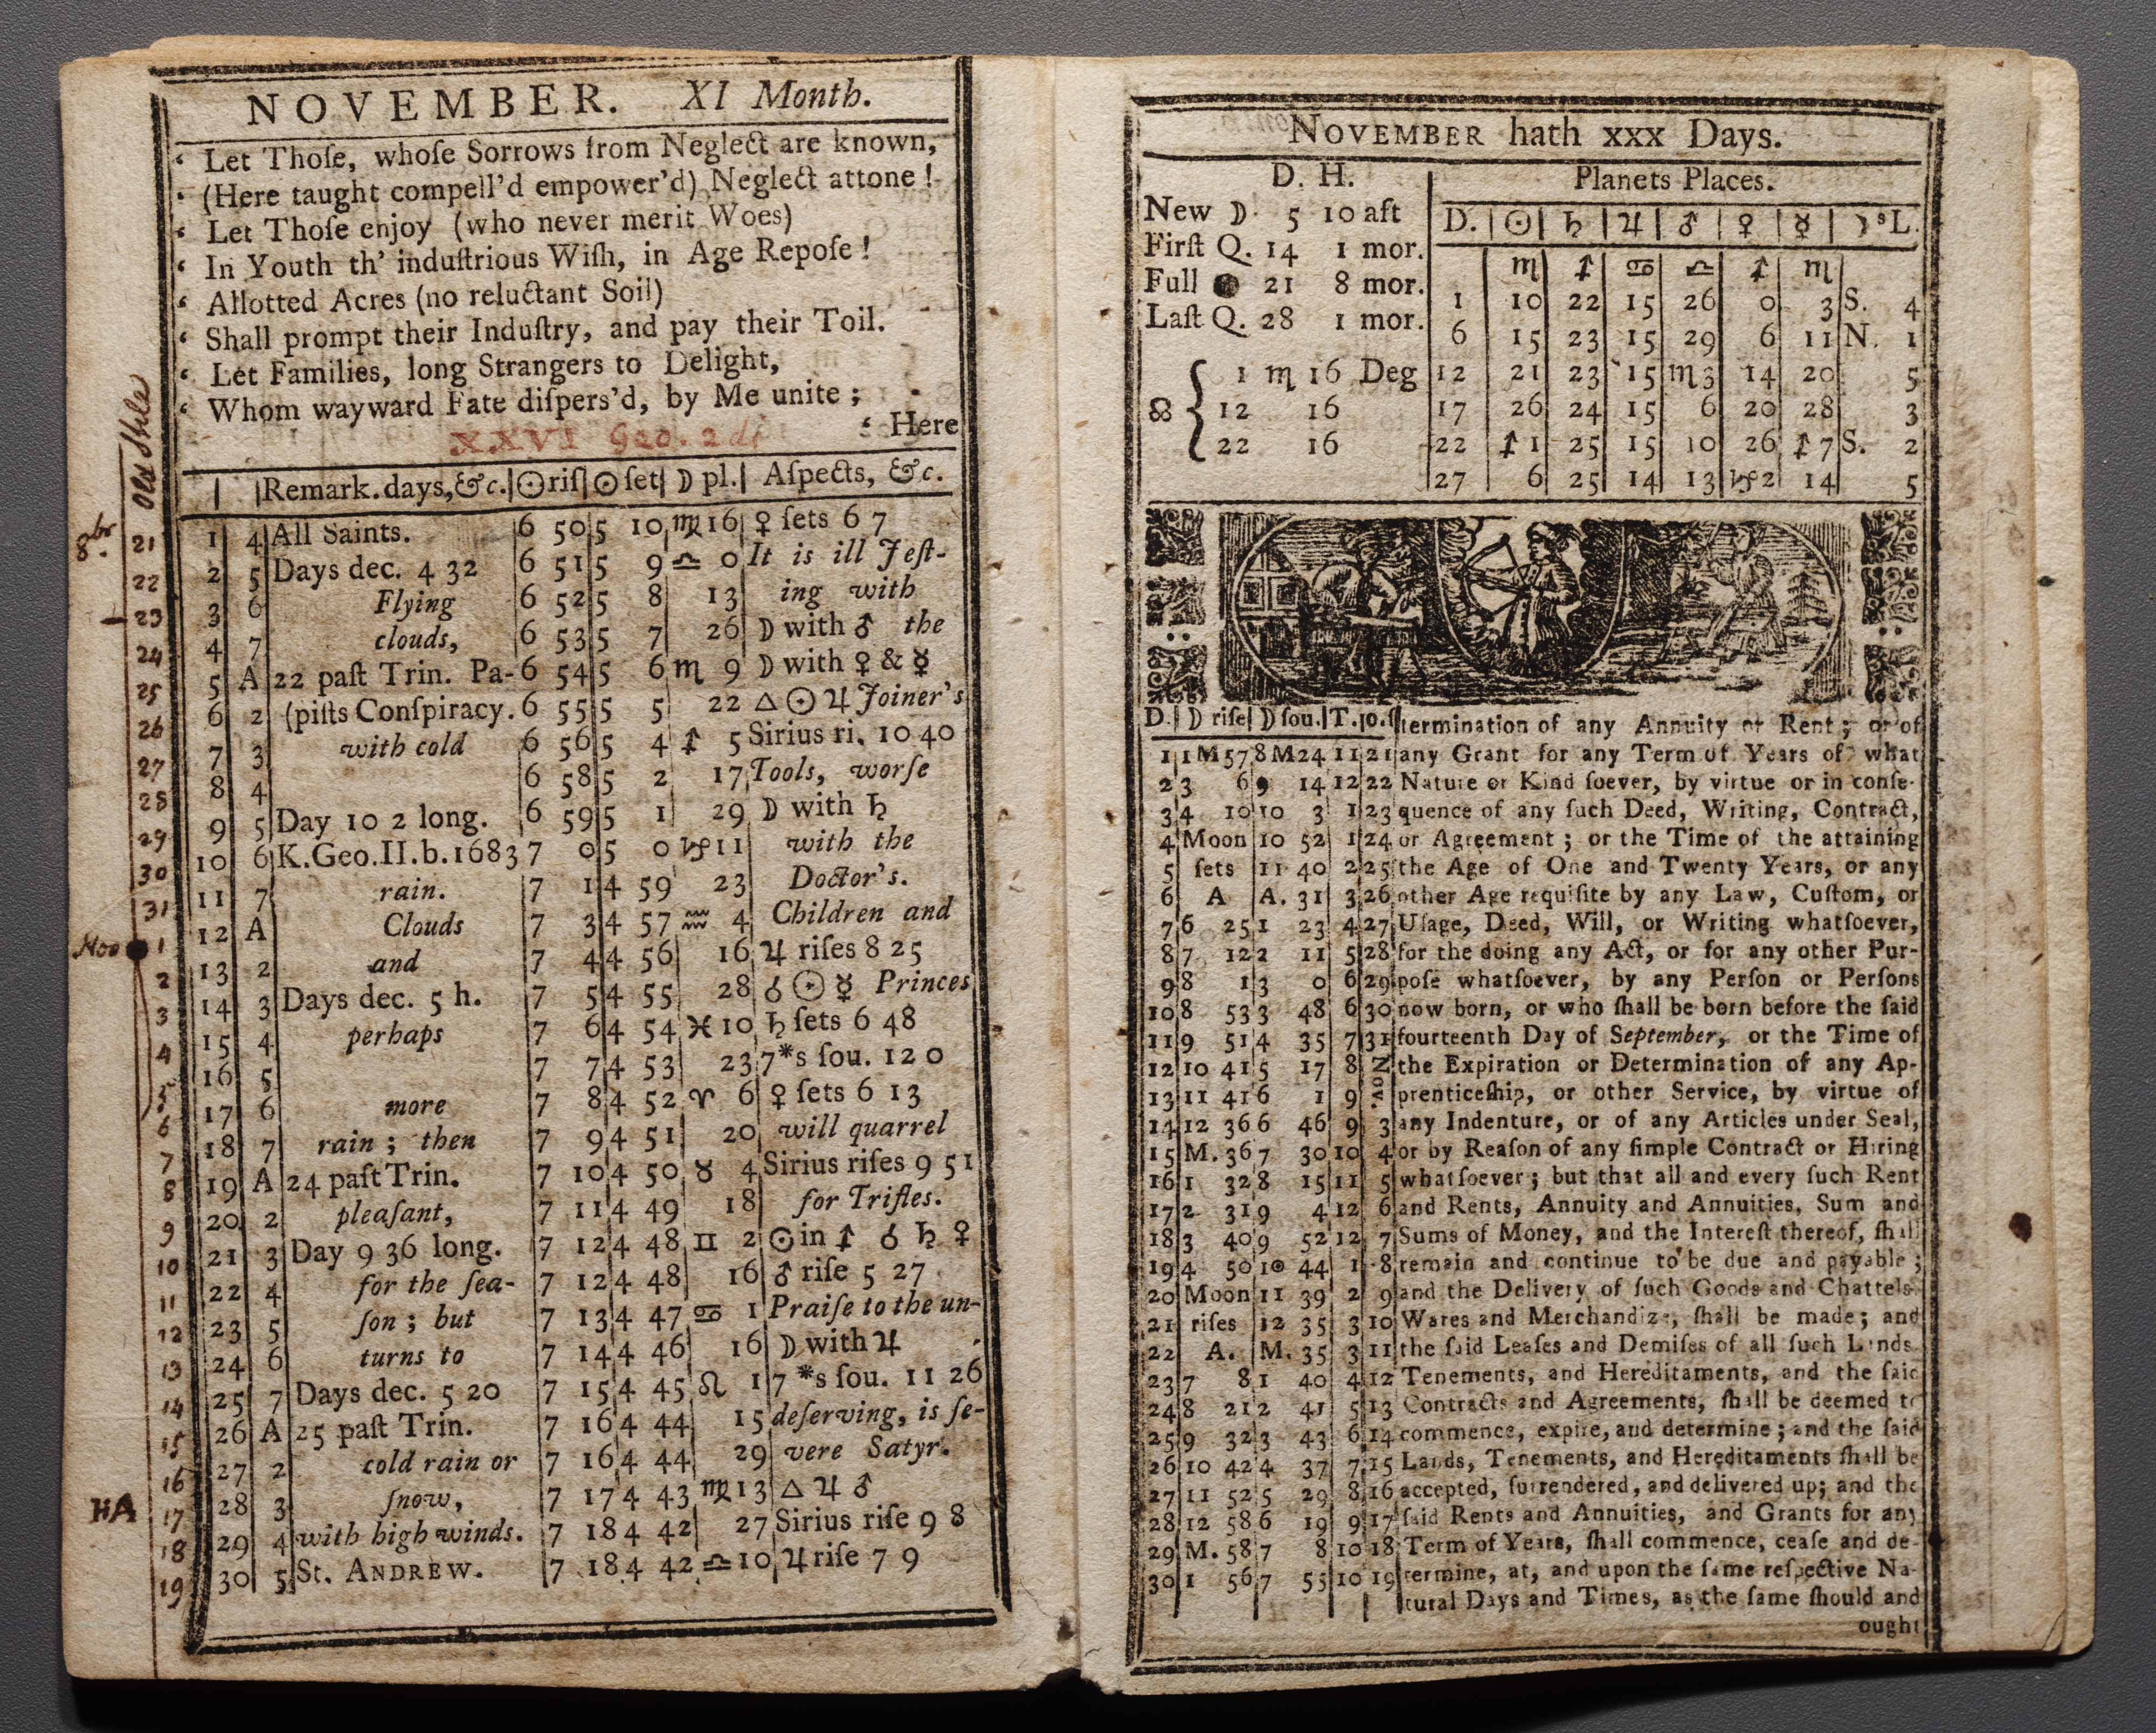 NOVEMBER. XI Month.
‘ Let Thoſe, whoſe Sorrows from Neglect are known,
‘ (Here taught compell'd empower'd) Neglect attone !
‘ Let Thoſe enjoy (who never merit Woes)
‘ In Youth th' induſtrious Wiſh, in Age Repoſe !
‘ Allotted Acres (no reluctant Soil)
‘ Shall prompt their Induſtry, and pay their Toil.
‘ Let Families, long Strangers to Delight,
‘ Whom wayward Fate diſpers'd, by Me unite ;
‘ Here
XXVI Geo. 2di
old Stile
Remark.days,&c. ☉riſ ☉ſet ☽ pl. Aſpects, &c.
8br 21 1 4 All Saints. 6 50 5 10 ♍ 16 ♀ ſets 6 7
22 2 5 Days dec. 4 32 6 51 5 9 ♎ 0 It is ill Jeſt-
23 3 6 Flying 6 52 5 8 13 ing with
24 4 7 clouds, 6 53 5 7 26 ☽ with ♂ the
25 5 A 22 paſt Trin. Pa- 6 54 5 6 ♏ 9 ☽ with ♀ & ☿
26 6 2 (piſts Conſpiracy. 6 55 5 5 22 △ ☉ ♃ Joiner's
27 7 3 with cold 6 56 5 4 ♐ 5 Sirius ri. 10 40
28 8 4 6 58 5 2 17 Tools, worſe
29 9 5 Day 10 2 long. 6 59 5 1 29 ☽ with ♄
30 10 6 K.Geo.II.b.1683 7 0 5 0 ♑ 11 with the
31 11 7 rain. 7 1 4 59 23 Doctor's.
Nov 1 12 A Clouds 7 3 4 57 ♒ 4 Children and
2 13 2 and 7 4 4 56 16 ♃ riſes 8 25
3 14 3 Days dec. 5 h. 7 5 4 55 28 ☌ ☉ ☿ Princes
4 15 4 perhaps 7 6 4 54 ♓ 10 ♄ ſets 6 48
5 16 5 7 7 4 53 23 7*s ſou. 12 0
6 17 6 more 7 8 4 52 ♈ 6 ♀ ſets 6 13
7 18 7 rain ; then 7 9 4 51 20 will quarrel
8 19 A 24 paſt Trin. 7 10 4 50 ♉ 4 Sirius riſes 9 51
9 20 2 pleaſant, 7 11 4 49 18 for Trifles.
10 21 3 Day 9 36 long. 7 12 4 48 ♊ 2 ☉ in ♐ ☌ ♄ ♀
11 22 4 for the ſea- 7 12 4 48 16 ♂ riſe 5 27
12 23 5 ſon ; but 7 13 4 47 ♋ 1 Praiſe to the un-
13 24 6 turns to 7 14 4 46 16 ☽ with ♃
14 25 7 Days dec. 5 20 7 15 4 45 ♌ 1 7 *s ſou. 11 26
15 26 A 25 paſt Trin. 7 16 4 44 15 deſerving, is ſe-
16 27 2 cold rain or 7 16 4 44 29 vere Satyr.
HA 17 28 3 ſnow, 7 17 4 43 ♍ 13 △ ♃ ♂
18 29 4 with high winds. 7 18 4 42 27 Sirius riſe 9 8
19 30 5 St. ANDREW. 7 18 4 42 ♎ 10 ♃ riſe 7 9
NOVEMBER hath xxx Days.
D. H.
New ☽ 5 10 aft
Firſt Q. 14 1 mor.
Full ● 21 8 mor.
Laſt Q. 28 1 mor.
☊ { 1 ♏ 16 Deg
12 16
22 16
Planets Places.
D. ☉ ♄ ♃ ♂ ♀ ☿ ☽sL.
♏ ♐ ♋ ♎ ♐ ♏
1 10 22 15 26 0 3 S. 4
6 15 23 15 29 6 11 N. 1
12 21 23 15 ♏3 14 20 5
17 26 24 15 6 20 28 3
22 ♐1 25 15 10 26 ♐7 S. 2
27 6 25 14 13 ♑2 14 5
D. ☽ riſe ☽ ſou. T. o.ſ termination of any Annuity or Rent ; or of
1 1M57 8M24 11 21 any Grant for any Term of Years of what
2 3 6 9 14 12 22 Nature or Kind ſoever, by virtue or in conſe-
3 4 10 10 3 1 23 quence of any ſuch Deed, Writing, Contract,
4 Moon 10 52 1 24 or Agreement ; or the Time of the attaining
5 ſets 11 40 2 25 the Age of One and Twenty Years, or any
6 A A. 31 3 26 other Age requiſite by any Law, Cuſtom, or
7 6 25 1 23 4 27 Uſage, Deed, Will, or Writing whatſoever,
8 7 12 2 11 5 28 for the doing any Act, or for any other Pur-
9 8 1 3 0 6 29 poſe whatſoever, by any Perſon or Perſons
10 8 53 3 48 6 30 now born, or who ſhall be born before the ſaid
11 9 51 4 35 7 31 fourteenth Day of September, or the Time of
12 10 41 5 17 8 Nov. the Expiration or Determination of any Ap-
13 11 41 6 1 9 prenticeſhip, or other Service, by virtue of
14 12 36 6 46 9 3 any Indenture, or of any Articles under Seal,
15 M. 36 7 30 10 4 or by Reaſon of any ſimple Contract or Hiring
16 1 32 8 15 11 5 whatſoever ; but that all and every ſuch Rent
17 2 31 9 4 12 6 and Rents, Annuity and Annuities, Sum and
18 3 40 9 52 12 7 Sums of Money, and the Intereſt thereof, ſhall
19 4 50 10 44 1 8 remain and continue to be due and payable ;
20 Moon 11 39 2 9 and the Delivery of ſuch Goods and Chattels
21 riſes 12 35 3 10 Wares and Merchandize, ſhall be made ; and
22 A. M. 35 3 11 the ſaid Leaſes and Demiſes of all ſuch Lands
23 7 8 1 40 4 12 Tenements, and Hereditaments, and the ſaid
24 8 21 2 41 5 13 Contracts and Agreements, ſhall be deemed to
25 9 32 3 43 6 14 commence, expire, and determine ; and the ſaid
26 10 42 4 37 7 15 Lands, Tenements, and Hereditaments ſhall be
27 11 52 5 29 8 16 accepted, ſurrendered, and delivered up; and the
28 12 58 6 19 9 17 ſaid Rents and Annuities, and Grants for any
29 M. 58 7 8 10 18 Term of Years, ſhall commence, ceaſe and de-
30 1 56 7 55 10 19 termine, at, and upon the ſame reſpective Na-
tural Days and Times, as the ſame ſhould and
ought